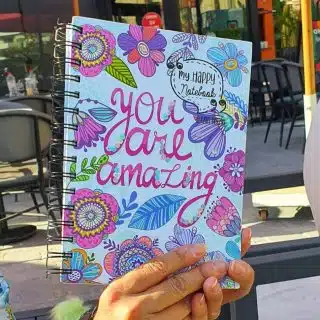 my Happy
Notebook
you
are
amazing